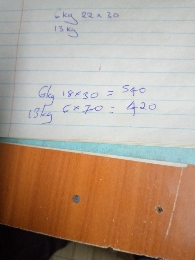 6kg 22 x 30
13kg
6kg 18 x 30 = 540
13kg 6 x 70 = 420